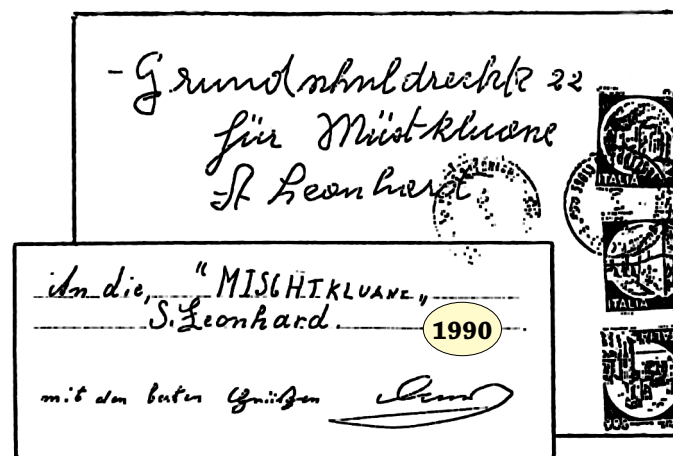 - Grundschuldreckt 22
für Müstkluane
St Leonhard
ITALIA
ITALIA
An die, "MISCHTKLUANE"
S. Leonhard.
1990
mit den besten Grüßen